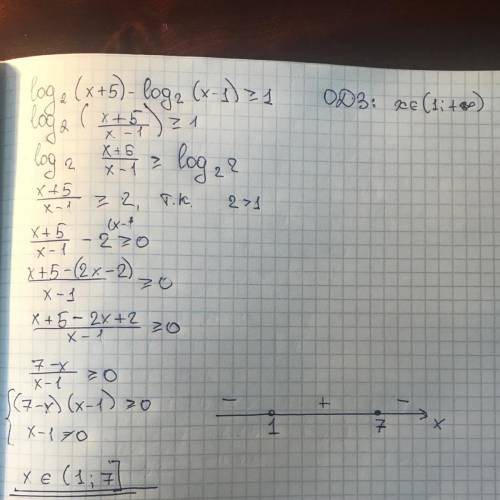 log₂(x+5)-log₂(x-1)≥1 ОДЗ: x∈(1;+∞)
log₂(\frac{x+5}{x-1})≥1
log₂ \frac{x+5}{x-1} ≥ log₂2
\frac{x+5}{x-1} ≥ 2, т.к. 2>1
\frac{x+5}{x-1} - 2^{(x-1} ≥0
\frac{x+5-(2x-2)}{x-1} ≥0
\frac{x+5-2x+2}{x-1} ≥0
\frac{7-x}{x-1} ≥0
{(7-x)(x-1)≥0
x-1≠0
- + -
1 7 x
x∈(1;7]